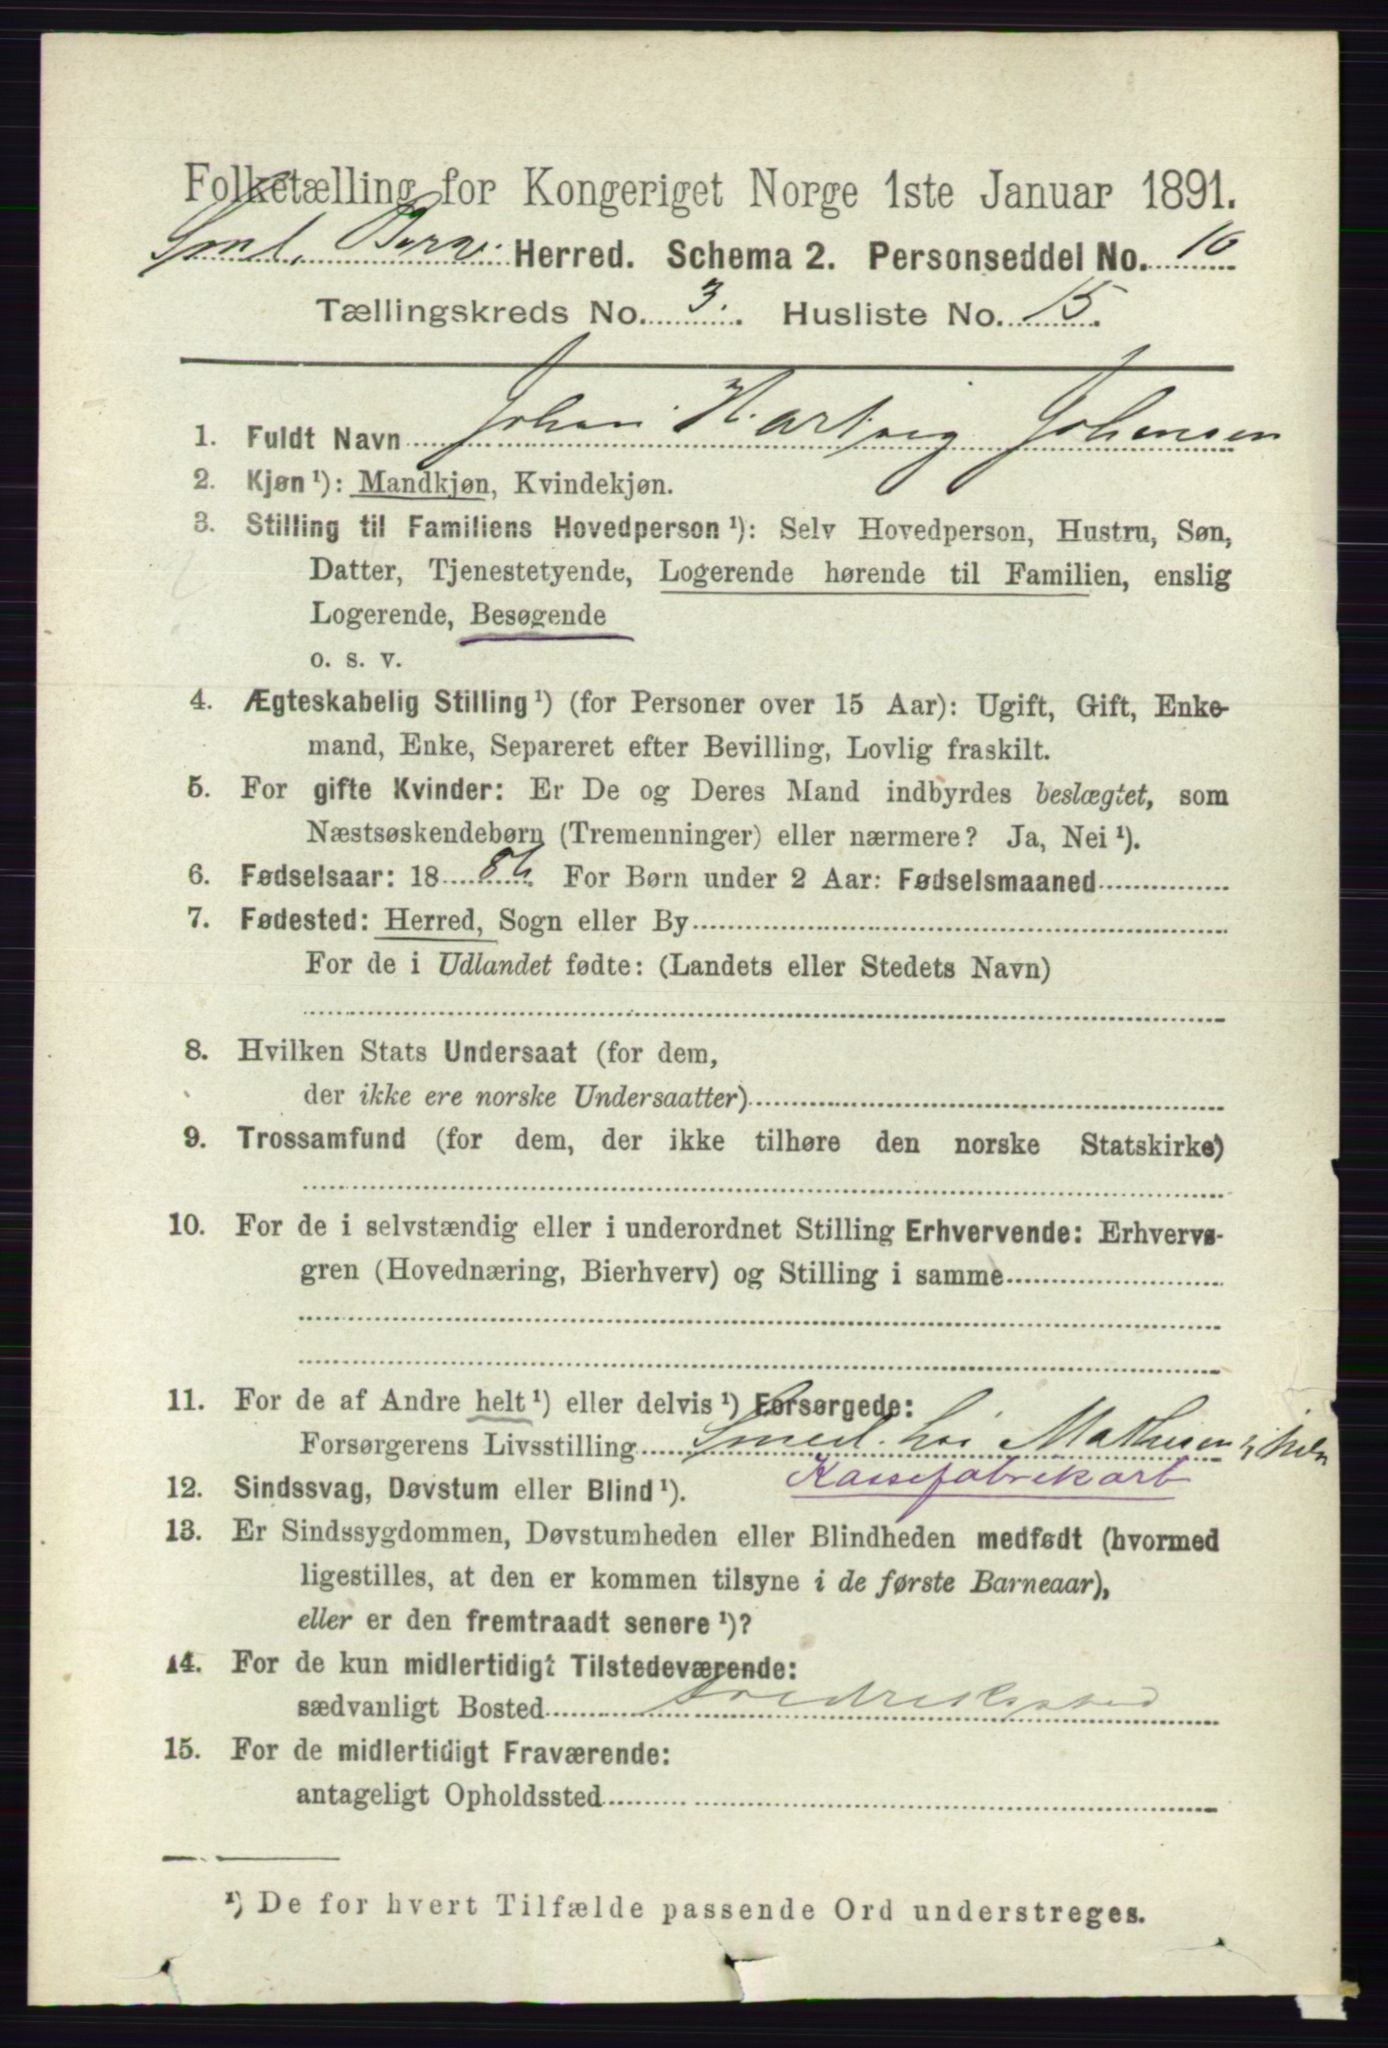 Folketælling for Kongeriget Norge 1ste Januar 1891.
Sml. Borge Herred. Schema 2. Personseddel No. 16
Tællingskreds No. 3. Husliste No. 15.
1. Fuldt Navn Johan Hartvig Johansen
2. Kjøn ¹): Mandkjøn, Kvindekjøn.
3. Stilling til Familiens Hovedperson ¹): Selv Hovedperson, Hustru, Søn,
Datter, Tjenestetyende, Logerende hørende til Familien, enslig
Logerende, Besøgende
o. s. v.
4. Ægteskabelig Stilling ¹) (for Personer over 15 Aar): Ugift, Gift, Enke-
mand, Enke, Separeret efter Bevilling, Lovlig fraskilt.
5. For gifte Kvinder: Er De og Deres Mand indbyrdes beslægtet, som
Næstsøskendebørn (Tremenninger) eller nærmere? Ja, Nei ¹).
6. Fødselsaar: 18 86 For Børn under 2 Aar: Fødselsmaaned
7. Fødested: Herred, Sogn eller By
For de i Udlandet fødte: (Landets eller Stedets Navn)
8. Hvilken Stats Undersaat (for dem,
der ikke ere norske Undersaatter)
9. Trossamfund (for dem, der ikke tilhøre den norske Statskirke)
10. For de i selvstændig eller i underordnet Stilling Erhvervende: Erhvervs-
gren (Hovednæring, Bierhverv) og Stilling i samme
11. For de af Andre helt ¹) eller delvis ¹) Forsørgede:
Forsørgerens Livsstilling Smed hos Mathisen
Kassefabrikarb
12. Sindssvag, Døvstum eller Blind ¹).
13. Er Sindssygdommen, Døvstumheden eller Blindheden medfødt (hvormed
ligestilles, at den er kommen tilsyne i de første Barneaar),
eller er den fremtraadt senere ¹)?
14. For de kun midlertidigt Tilstedeværende:
sædvanligt Bosted Fredriksstad
15. For de midlertidigt Fraværende:
antageligt Opholdssted
¹) De for hvert Tilfælde passende Ord understreges.